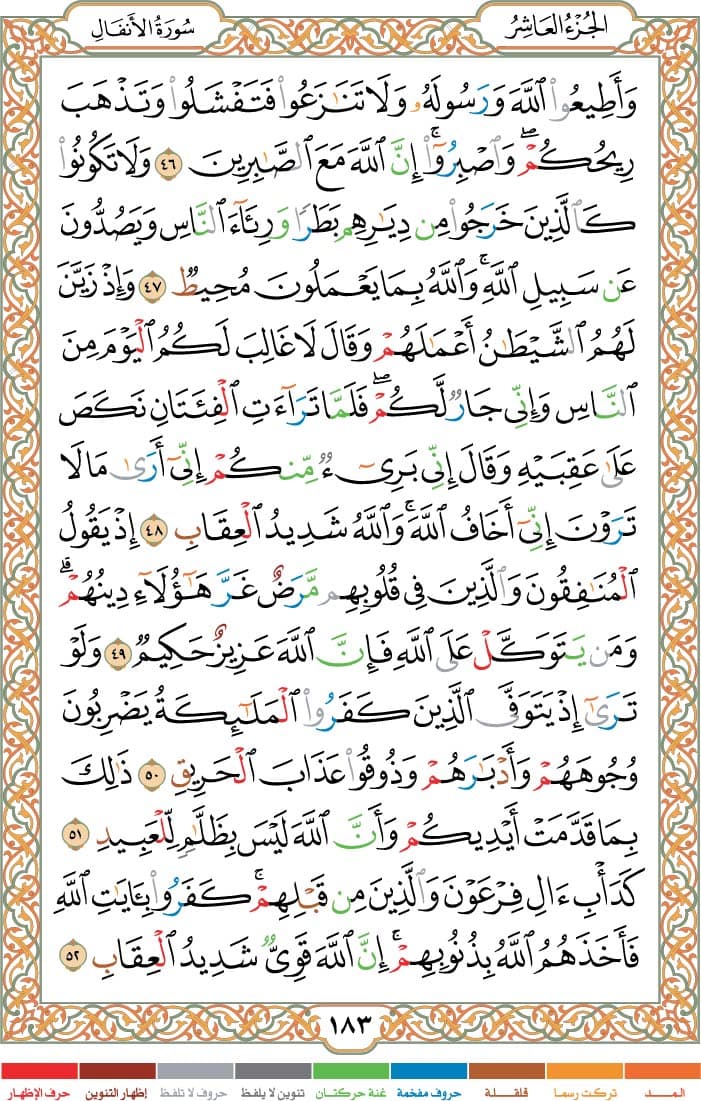 الجُزْءُ العَاشِرُ
سُورَةُ الأَنفَالِ
وَأَطِيعُوا۟ ٱللَّهَ وَرَسُولَهُۥ وَلَا تَنَـٰزَعُوا۟ فَتَفْشَلُوا۟ وَتَذْهَبَ
رِيحُكُمْ ۖ وَٱصْبِرُوٓا۟ ۚ إِنَّ ٱللَّهَ مَعَ ٱلصَّـٰبِرِينَ ٤٦ وَلَا تَكُونُوا۟
كَٱلَّذِينَ خَرَجُوا۟ مِن دِيَـٰرِهِم بَطَرًا وَرِئَآءَ ٱلنَّاسِ وَيَصُدُّونَ
عَن سَبِيلِ ٱللَّهِ ۚ وَٱللَّهُ بِمَا يَعْمَلُونَ مُحِيطٌ ٤٧ وَإِذْ زَيَّنَ
لَهُمُ ٱلشَّيْطَـٰنُ أَعْمَـٰلَهُمْ وَقَالَ لَا غَالِبَ لَكُمُ ٱلْيَوْمَ مِنَ
ٱلنَّاسِ وَإِنِّى جَارٌ لَّكُمْ ۖ فَلَمَّا تَرَآءَتِ ٱلْفِئَتَانِ نَكَصَ
عَلَىٰ عَقِبَيْهِ وَقَالَ إِنِّى بَرِىٓءٌ مِّنكُمْ إِنِّىٓ أَرَىٰ مَا لَا
تَرَوْنَ إِنِّىٓ أَخَافُ ٱللَّهَ ۚ وَٱللَّهُ شَدِيدُ ٱلْعِقَابِ ٤٨ إِذْ يَقُولُ
ٱلْمُنَـٰفِقُونَ وَٱلَّذِينَ فِى قُلُوبِهِم مَّرَضٌ غَرَّ هَـٰٓؤُلَآءِ دِينُهُمْ ۗ
وَمَن يَتَوَكَّلْ عَلَى ٱللَّهِ فَإِنَّ ٱللَّهَ عَزِيزٌ حَكِيمٌ ٤٩ وَلَوْ
تَرَىٰٓ إِذْ يَتَوَفَّى ٱلَّذِينَ كَفَرُوا۟ ٱلْمَلَـٰٓئِكَةُ يَضْرِبُونَ
وُجُوهَهُمْ وَأَدْبَـٰرَهُمْ وَذُوقُوا۟ عَذَابَ ٱلْحَرِيقِ ٥٠ ذَٰلِكَ
بِمَا قَدَّمَتْ أَيْدِيكُمْ وَأَنَّ ٱللَّهَ لَيْسَ بِظَلَّـٰمٍ لِّلْعَبِيدِ ٥١
كَدَأْبِ ءَالِ فِرْعَوْنَ وَٱلَّذِينَ مِن قَبْلِهِمْ ۚ كَفَرُوا۟ بِـَٔايَـٰتِ ٱللَّهِ
فَأَخَذَهُمُ ٱللَّهُ بِذُنُوبِهِمْ ۚ إِنَّ ٱللَّهَ قَوِىٌّ شَدِيدُ ٱلْعِقَابِ ٥٢
١٨٣
المـــد تركت رسما قلقلة حروف مفخمة غنة حركتان تنوين لا يلفظ حروف لا تلفظ إظهار التنوين حرف الإظهار